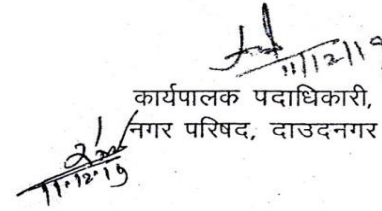 11/12/19
कार्यपालक पदाधिकारी,
नगर परिषद, दाउदनगर
11.12.19